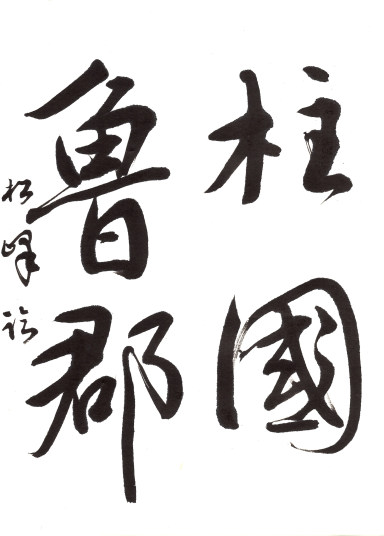 柱國
魯郡
松峰臨